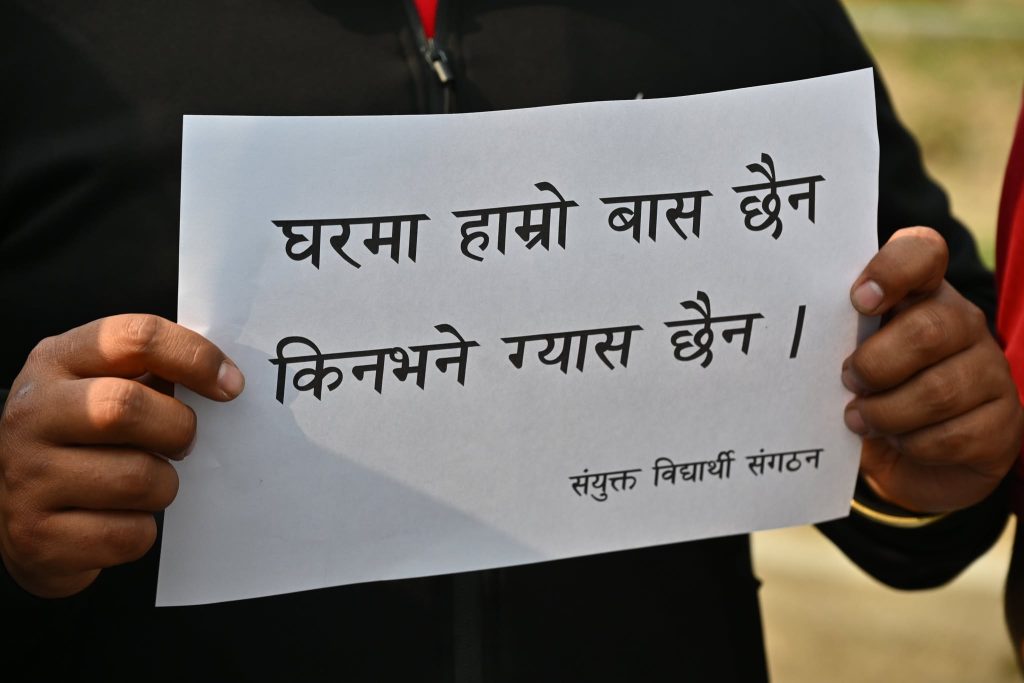 घरमा हाम्रो बास छैन
किनभने ग्यास छैन ।
संयुक्त विद्यार्थी संगठन